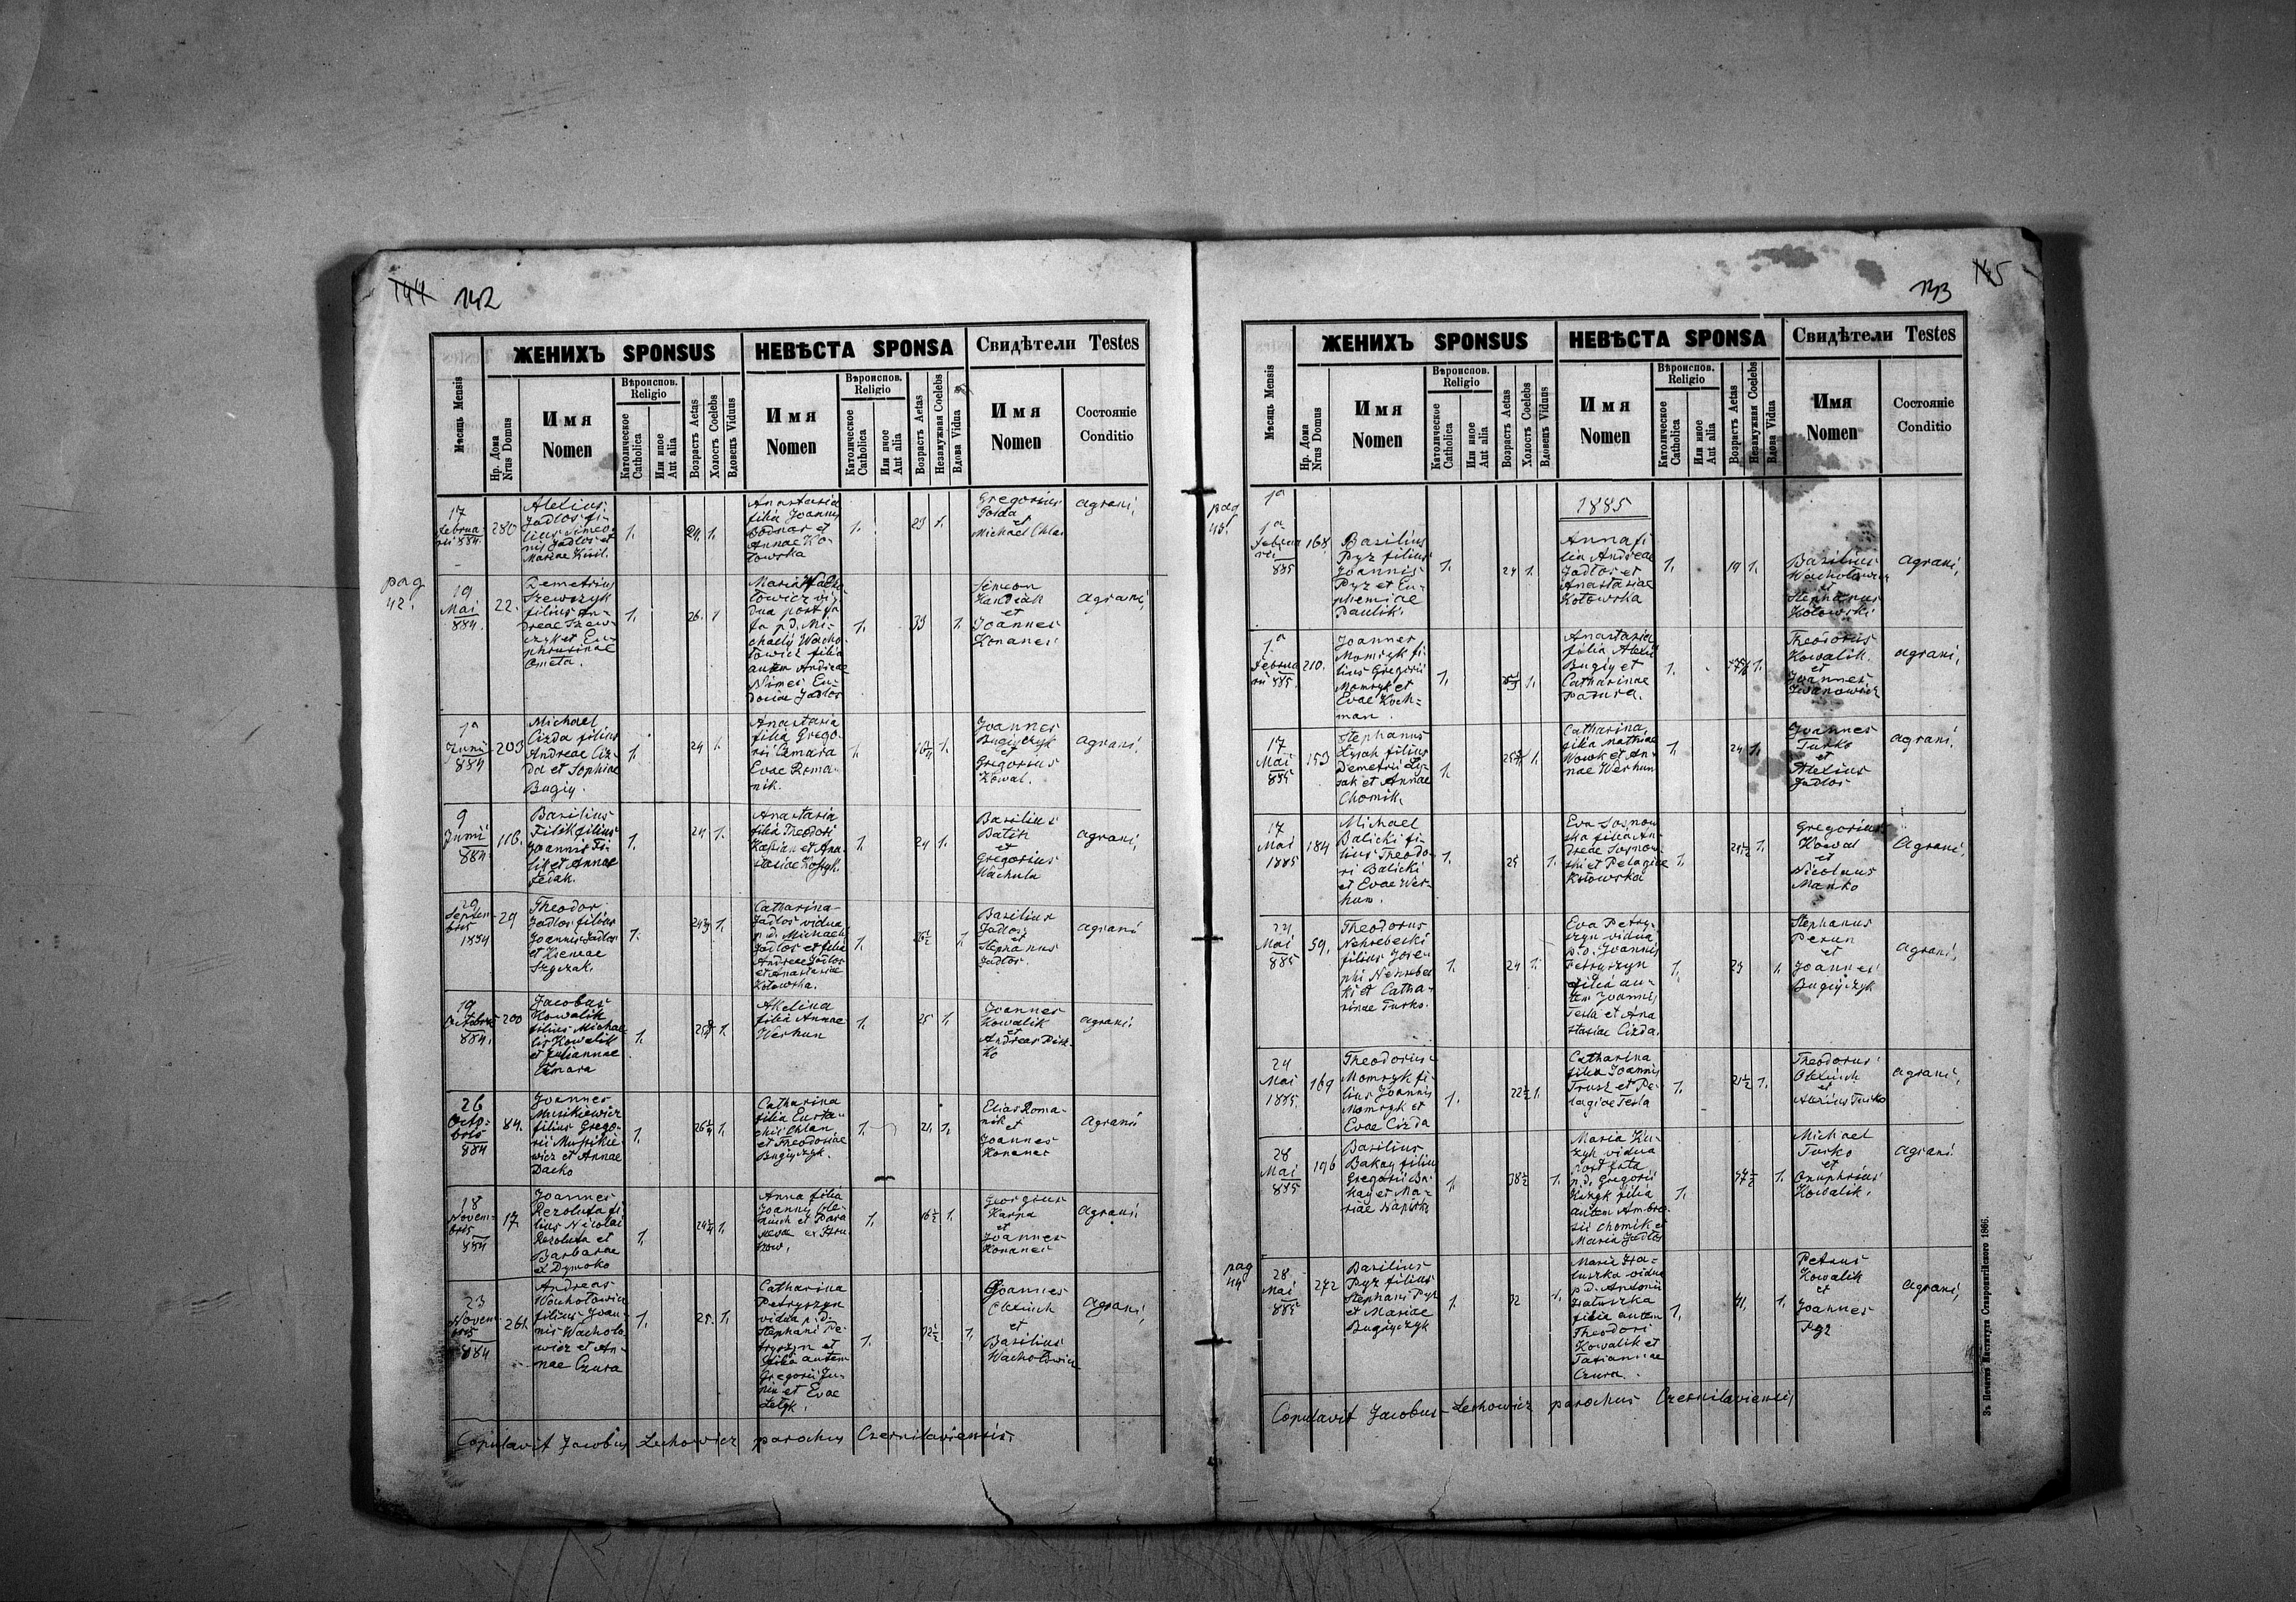 144 142
ЖЕНИХЪ SPONSUS НЕВѢСТА SPONSA Свидѣтели Testes
Мѣсяць Mensis
Нр. Дома
Nrus Domus
Имя
Nomen
Вѣроиспов.
Religio
Католическое
Catholica
Или иное
Aut alia
Возрастъ Aetas
Холостъ Coelebs
Вдовецъ Viduus
Имя
Nomen
Вѣроиспов.
Religio
Католическое
Catholica
Или иное
Aut alia
Возрастъ Aetas
Незамужная Coelebs
Вдова Vidua
Имя
Nomen
Состояніе
Conditio
17
Februa-
rii 884.
280
Alexius
Jadlos fi-
lius Simeo-
nis Jadlos et
Mariae Kisil.
1. 24. 1.
Anastasia
filia Joannis
Bodnar et
Annae Ko-
towska
1. 23 1.
Gregorius
Gorda
et
Michael Chlan
agrani,
pag
42.
19
Mai
884.
22.
Demetrius
Szewczyk
filius An-
dreae Szew-
czyk et Eu-
phrosinae
Ometa.
1. 26. 1
Maria Wacho-
towicz vi-
dua post fa-
ta p.d. Mi-
chaelis Wacho-
towicz filia
autem Andreae
Nimei Eu-
dociae Jadlos
1. 33 1.
Simeon
Handiak
et
Joannes
Konanec
agrani,
1a
Junii
884
203
Michael
Cizda filius
Andreae Ciz-
da et Sophiae
Bugiy.
1. 24 1.
Anastasia
filia Grego-
rii Cimara
Evae Roma-
nik.
1. 1.
Joannes
Bugiyczyk
et
Gregorius
Kowal.
agrani,
9
Junii
884
116.
Basilius
Filik filius
Joannis Fi-
lik et Annae
Fedak.
1. 24 1.
Anastasia
filia Theodori
Kassian et Ana-
stasiae
1. 24 1.
Basilius
Batih
et
Gregorius
Wachula
agrani,
29
Septem-
bris
1884
29
Theodor
Jadlos filius
Joannis Jadlos
et Kseniae
Szyczak.
1. 1.
Catharina
Jadlos vidua
p.d. Michaeli
Jadlos et filia
Andreae Jadlos
et Anastasiae
Kotowska.
1. 1
Basilius
Jadlos
et
Stephanus
Jadlos.
agrani
19
Octobris
884.
200
Jacobus
Kowalik
filius Michae-
lis Kowalik
et Juliannae
Cimara
1. 1.
Akelina
filia Annae
Werhun
1. 25 1.
Joannes
Kowalik
et
Andreas
agrani.
26
Octo-
bris
884
84.
Joannes
Musikiewicz
filius Grego-
rii Musikie-
wicz et Annae
Dacko
1. 1.
Catharina
filia Eusta-
chii Chlan
et Theodosiae
Bugiyczyk.
1. 24. 1.
Elias Roma-
nik
et
Joannes
Konanec
agrani
18
Novem-
bris
884
17.
Joannes
Rezoluta fi-
lius Nicolai
Rezoluta et
Barbarae
ex Dymoko
1. 1.
Anna filia
Joannis Ole-
xiuch et Para-
scevae ex Hru-
zow.
1. 16½ 1.
Georgius
Karpa
et
Joannes
Konanec
agrani.
23
Novem-
bris
884
261.
Andreas
Wachotowicz
filius Joan-
nis Wachoto-
wicz et An-
nae Czura
1. 25. 1.
Catharina
Petryszyn
vidua p.d.
Stephani Pe-
tryszyn et
filia autem
Gregorii
et Evae
1. 32½ 1.
Joannes
Olexiuch
et
Basilius
Wachotowicz
agrani,
Copulavit Jacobus Lechowicz parochus Czernilaviensis.
133 145
ЖЕНИХЪ SPONSUS НЕВѢСТА SPONSA Свидѣтели Testes
Мѣсяць Mensis
Нр. Дома
Nrus Domus
Имя
Nomen
Вѣроиспов.
Religio
Католическое
Catholica
Или иное
Aut alia
Возрастъ Aetas
Холостъ Coelebs
Вдовецъ Viduus
Имя
Nomen
Вѣроиспов.
Religio
Католическое
Catholica
Или иное
Aut alia
Возрастъ Aetas
Незамужная Coelebs
Вдова Vidua
Имя
Nomen
Состояніе
Conditio
1a
1885
pag
43.
1a
Februa-
rii
885
168.
Basilius
Pyz filius
Joannis
Pyz et Eu-
phemiae
Paulik.
1. 24 1.
Anna fi-
lia Andreae
Jadlos et
Anastasiae
Kotowska
1. 19 1.
Basilius
Wachotowicz
et
Stephanus
Kotowski
agrani,
1a
Februa-
rii 885.
210.
Joannes
Momryk fi-
lius Gregorii
Momryk et
Evae Koch-
man.
1. 1.
Anastasia
filia Alexii
Bugiy et
Catharinae
Pazura.
1. 1.
Theodorus
Kowalik.
et
Joannes
Iwanowicz
agrani,
17
Mai
885
153
Stephanus
Lysak filius
Demetrii Ly-
sak et Annae
Chomik.
1. 1.
Catharina,
filia Mathiae
Wowk et An-
nae Werhun
1. 24 1.
Joannes
Turko
et
Alexius
Jadlos
agrani.
17
Mai
1885
184
Michael
Balicki fi-
lius Theodo-
ri Balicki
et Evae Wer-
hun.
1. 25 1.
Eva Sosnow-
ska filia An-
dreae Sosnow-
ski et Pelagiae
Kotowska
1. 1.
Gregorius
Kowal
et
Nicolaus
Mańko
Agrani,
24
Mai
885
59.
Theodorus
Nehrebecki
filius Jose-
phi Nehrebec-
ki et Catha-
rinae Turko.
1. 24 1.
Eva Petry-
szyn vidua
p.d. Joannis
Petryszyn
filia au-
tem Joannis
Tesla et Ana-
stasiae Cizda.
1. 23 1.
Stephanus
Perun
et
Joannes
Bugiyczyk
agrani,
24
Mai
1885.
169
Theodorus
Momryk fi-
lius Joannis
Momryk et
Evae Cizda
1. 22½ 1.
Catharina
filia Joannis
Trusz et Pe-
lagiae Tesla
1. 21½ 1.
Theodorus
Olexiuch
et
Alexius Turko
agrani,
28
Mai
885
196
Basilius
Bakay filius
Gregorii Ba-
kay et Ma-
riae
1. 38½ 1.
Maria Ku-
zyk vidua
post fata
p.d. Gregorii
Kuzyk filia
autem Ambro-
sii Chomik et
Maria Jadlos
1. 47½ 1.
Michael
Turko
et
Onuphrius
Kowalik.
agrani
pag
44
28
Mai
885
272
Basilius
Pyz filius
Stephani Pyz
et Mariae
Bugiyczyk
1. 32 1.
Maria Hra-
tuszka vidua
p.d. Antonii
Hratuszka
filia autem
Theodori
Kowalik et
Tatiannae
Czura.
1. 41. 1.
Petrus
Kowalik
et
Joannes
Pyz
agrani,
Copulavit Jacobus Lechowicz parochus Czernilaviensis
Зъ Печатнѣ Института Ставропигійского 1866.